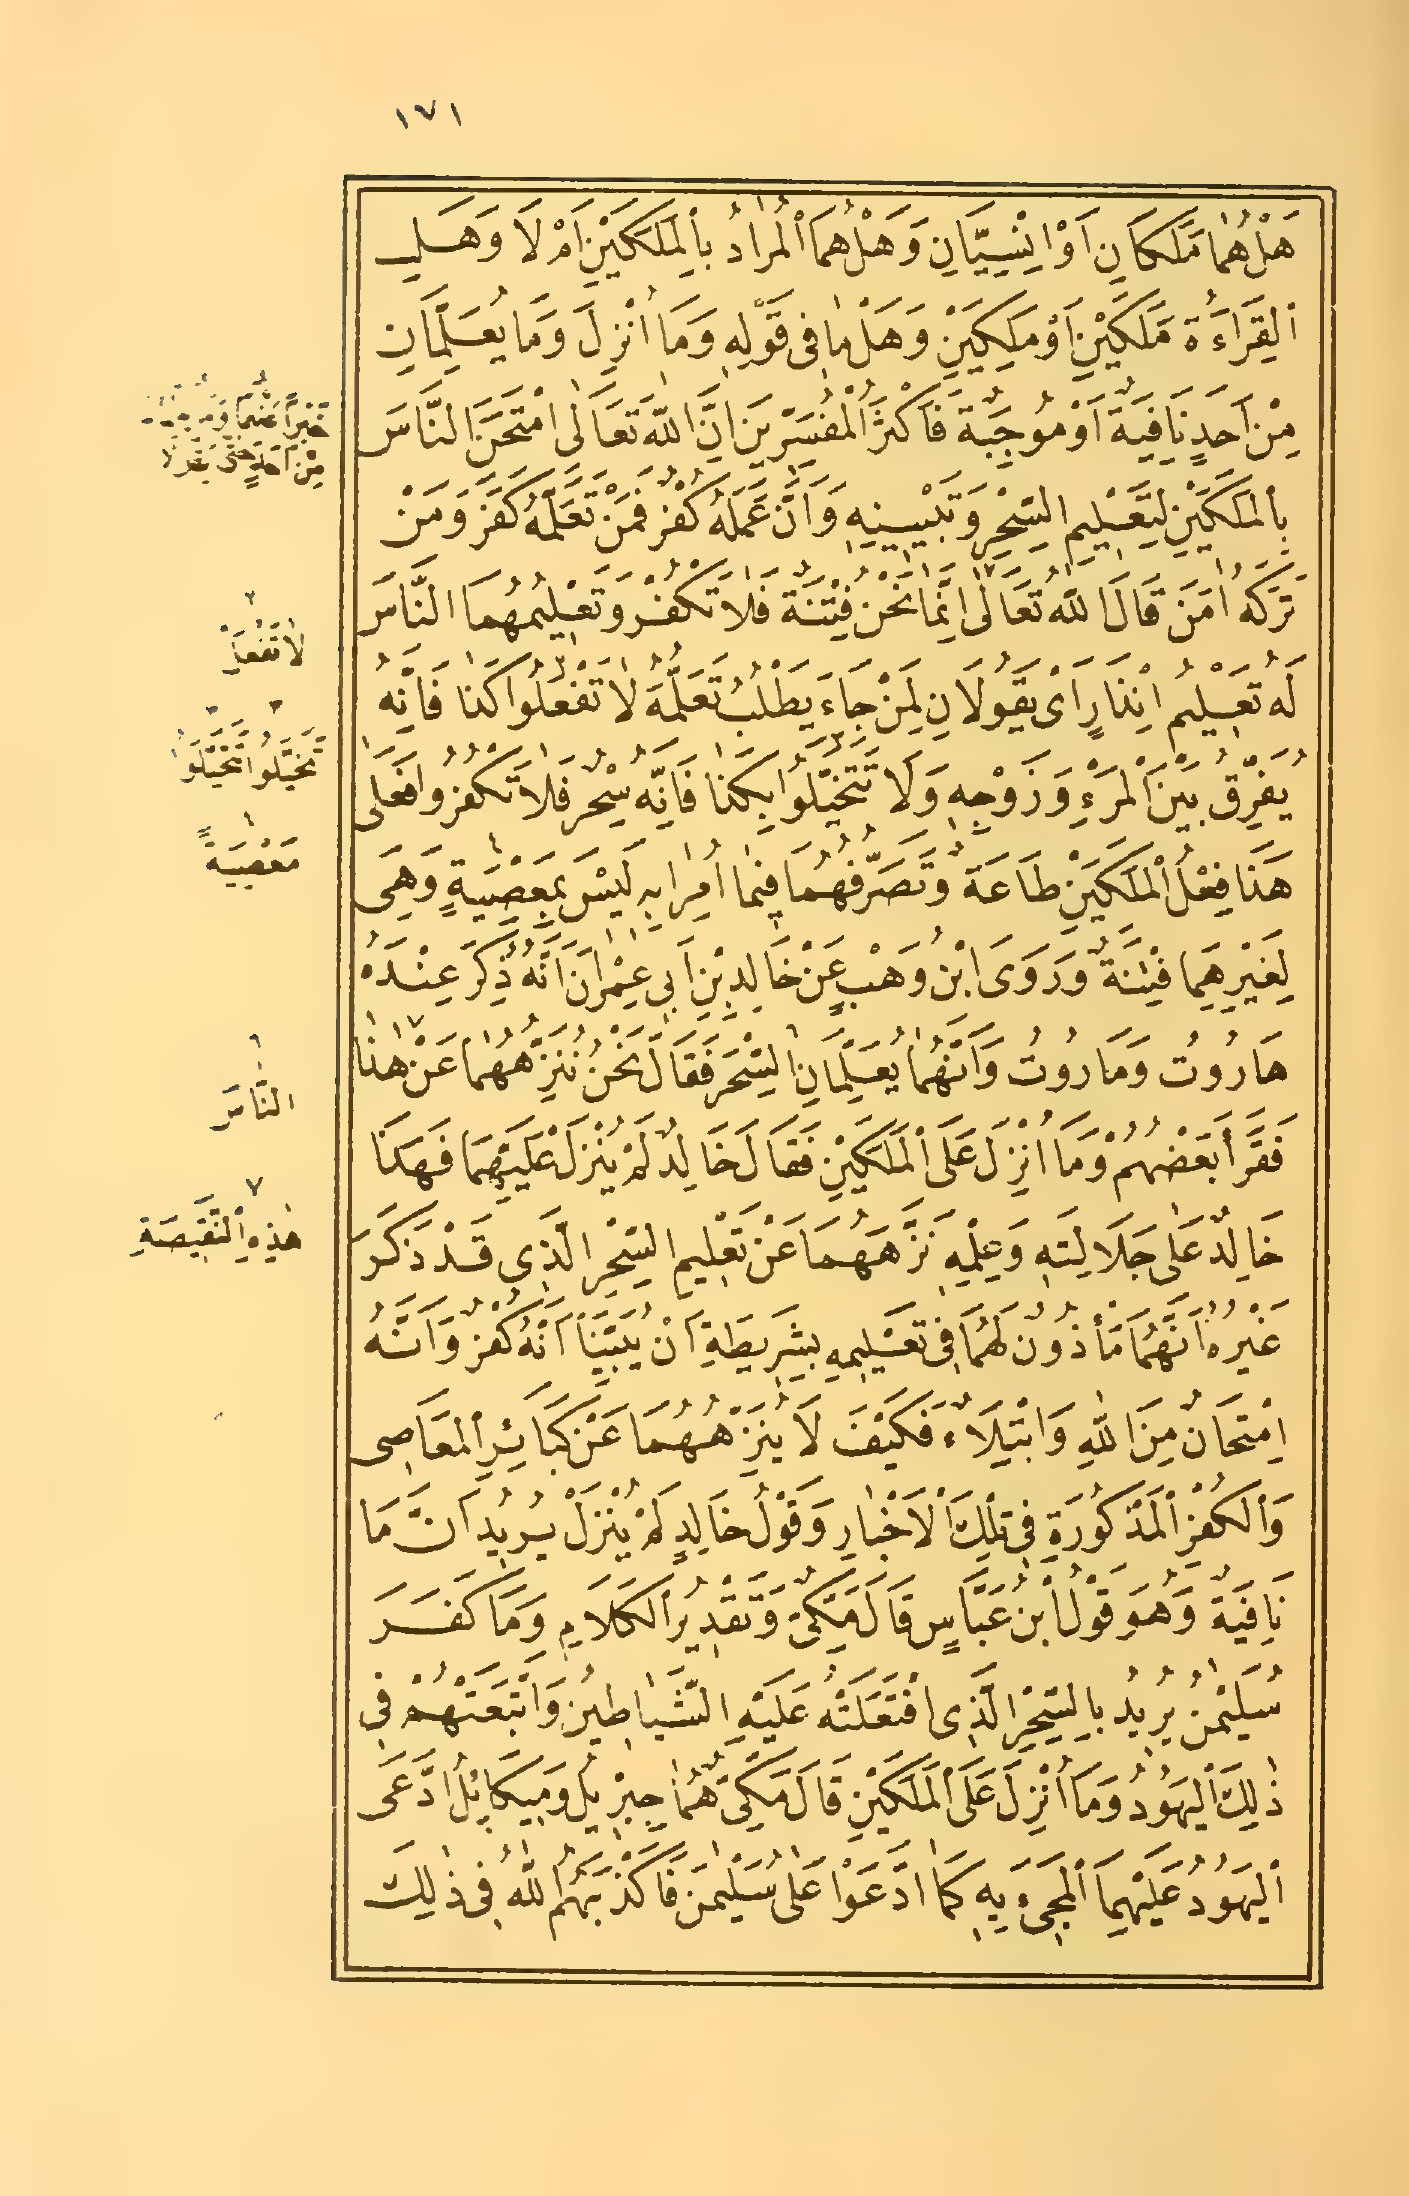 ١٧١
هَلْ هُمَا مَلَكَانِ اَوْ اِنْسِيَّانِ وَهَلْ هُمَا الْمُرَادُ بِالْمَلَكَيْنِ اَمْ لَا وَهَلِ
الْقِرَاءَةُ مَلَكَيْنِ اَوْ مَلِكَيْنِ وَهَلْ مَا فِى قَوْلِهِ وَمَا اُنْزِلَ وَمَا يُعَلِّمَانِ
مِنْ اَحَدٍ نَافِيَةٌ اَوْ مُوجِبَةٌ فَاَكْثَرُ الْمُفَسِّرِينَ اِنَّ اللّٰهَ تَعَالٰى امْتَحَنَ النَّاسَ
بِالْمَلَكَيْنِ لِتَعْلِيمِ السِّحْرِ وَتَبْيِينِهِ وَاَنَّ عَمَلَهُ كُفْرٌ فَمَنْ تَعَلَّمَهُ كَفَرَ وَمَنْ
تَرَكَهُ اٰمَنَ قَالَ اللّٰهُ تَعَالٰى اِنَّمَا نَحْنُ فِتْنَةٌ فَلَا تَكْفُرْ وَتَعْلِيمُهُمَا النَّاسَ
لَهُ تَعْلِيمُ اِنْذَارٍ اَىْ يَقُولَانِ لِمَنْ جَاءَ يَطْلُبُ تَعَلُّمَهُ لَا تَفْعَلُوا كَذَا فَاِنَّهُ
يُفَرِّقُ بَيْنَ الْمَرْءِ وَزَوْجِهِ وَلَا تَتَخَيَّلُوا بِكَذَا فَاِنَّهُ سِحْرٌ فَلَا تَكْفُرُوا فَعَلٰى
هَذَا فِعْلُ الْمَلَكَيْنِ طَاعَةٌ وَتَصَرُّفُهُمَا فِيمَا اُمِرَا بِهِ لَيْسَ بِمَعْصِيَةٍ وَهِىَ
لِغَيْرِهِمَا فِتْنَةٌ وَرَوَى ابْنُ وَهْبٍ عَنْ خَالِدِ بْنِ اَبِى عِمْرَانَ اَنَّهُ ذُكِرَ عِنْدَهُ
هَارُوتُ وَمَارُوتُ وَاَنَّهُمَا يُعَلِّمَانِ السِّحْرَ فَقَالَ نَحْنُ نُنَزِّهُهُمَا عَنْ هٰذَا
فَقَرَأَ بَعْضُهُمْ وَمَا اُنْزِلَ عَلَى الْمَلَكَيْنِ فَقَالَ خَالِدٌ لَمْ يُنْزَلْ عَلَيْهِمَا فَهَذَا
خَالِدٌ عَلٰى جَلَالَتِهِ وَعِلْمِهِ نَزَّهَهُمَا عَنْ تَعْلِيمِ السِّحْرِ الَّذِى قَدْ ذَكَرَ
غَيْرُهُ اَنَّهُمَا مَأْذُونٌ لَهُمَا فِى تَعْلِيمِهِ بِشَرِيطَةِ اَنْ يُبَيِّنَا اَنَّهُ كُفْرٌ وَاَنَّهُ
اِمْتِحَانٌ مِنَ اللّٰهِ وَابْتِلَاءٌ فَكَيْفَ لَا يُنَزِّهُهُمَا عَنْ كَبَائِرِ الْمَعَاصِى
وَالْكُفْرِ الْمَذْكُورَةِ فِى تِلْكَ الْاَخْبَارِ وَقَوْلُ خَالِدٍ لَمْ يُنْزَلْ يُرِيدُ اَنَّ مَا
نَافِيَةٌ وَهُوَ قَوْلُ ابْنِ عَبَّاسٍ قَالَ مَكِّىٌّ وَتَقْدِيرُ الْكَلَامِ وَمَا كَفَرَ
سُلَيْمٰنُ يُرِيدُ بِالسِّحْرِ الَّذِى افْتَعَلَتْهُ عَلَيْهِ الشَّيَاطِينُ وَاتَّبَعَتْهُمْ فِى
ذٰلِكَ الْيَهُودُ وَمَا اُنْزِلَ عَلَى الْمَلَكَيْنِ قَالَ مَكِّىٌّ هُمَا جِبْرِيلُ وَمِيكَائِلُ ادَّعَى
الْيَهُودُ عَلَيْهِمَا الْمَجِىءَ بِهِ كَمَا ادَّعَوْا عَلٰى سُلَيْمٰنَ فَاَكْذَبَهُمُ اللّٰهُ فِى ذٰلِكَ
خَبَرًا عَنْهُمَا
مِنْ اَحَدٍ حَتّٰى يَقُولَا
٢
لَا تَفْعَلْ
٣ ٣
تَخَيَّلُوا تَتَحَيَّلُوا
١
مَعْصِيَةً
٦
النَّاسَ
٧
هٰذِهِ النَّقِيصَةِ